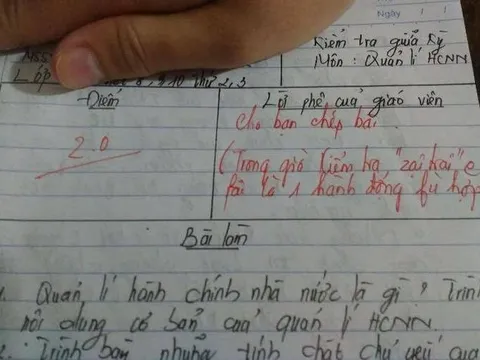 Ngày
Kiểm tra giữa kỳ
Môn : Quản lí HCNN
MSS
LỚP 8, 9, 10 thứ 2, 3
Điểm
Lời phê của giáo viên
2.0
Cho bạn chép bài.
(Trong giờ kiểm tra "zại kai"
fải là 1 hành động fù hợp
Bài làm
Quản lí hành chính nhà nước là gì ? Trình
nội dung cơ bản của quản lí HCNN.
2. Trình bày những tính chất chủ yếu của